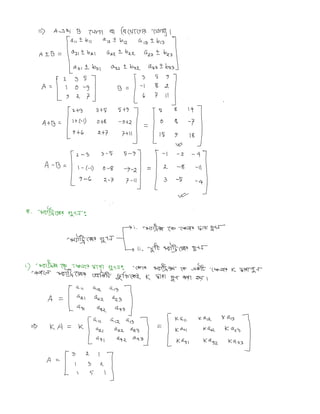 ii) A এবং B যোগ বা বিয়োগের ক্ষেত্রে।
A±B = [a11 ± b11 a12 ± b12 a13 ± b13
a21 ± b21 a22 ± b22 a23 ± b23
a31 ± b31 a32 ± b32 a33 ± b33]
A = [2 3 5
1 0 -9
9 2 7] B = [3 5 9
-1 8 2
6 7 11]
A+B = [2+3 3+5 5+9
1+(-1) 0+8 -9+2
9+6 2+7 7+11] = [5 8 14
0 8 -7
15 9 18]
A-B = [2-3 3-5 5-9
1-(-1) 0-8 -9-2
9-6 2-7 7-11] = [-1 -2 -4
2 -8 -11
3 -5 -4]
ম্যাট্রিক্সের গুণন
i. ম্যাট্রিক্স কে দ্বারা গুণন
ম্যাট্রিক্সের গুণন
ii. দুটি ম্যাট্রিক্সের গুণন
i) ম্যাট্রিক্স কে দ্বারা গুণন ম্যাট্রিক্স কে একটি K দ্বারা গুণ
ম্যাট্রিক্সের প্রতিটি K দ্বারা গুণ করা হয়।
A = [a11 a12 a13
a21 a22 a23
a31 a32 a33]
⇒ KA = K [a11 a12 a13
a21 a22 a23
a31 a32 a33] = [Ka11 Ka12 Ka13
Ka21 Ka22 Ka23
Ka31 Ka32 Ka33]
A = [3 2 1
1 3 2
1 5 1]